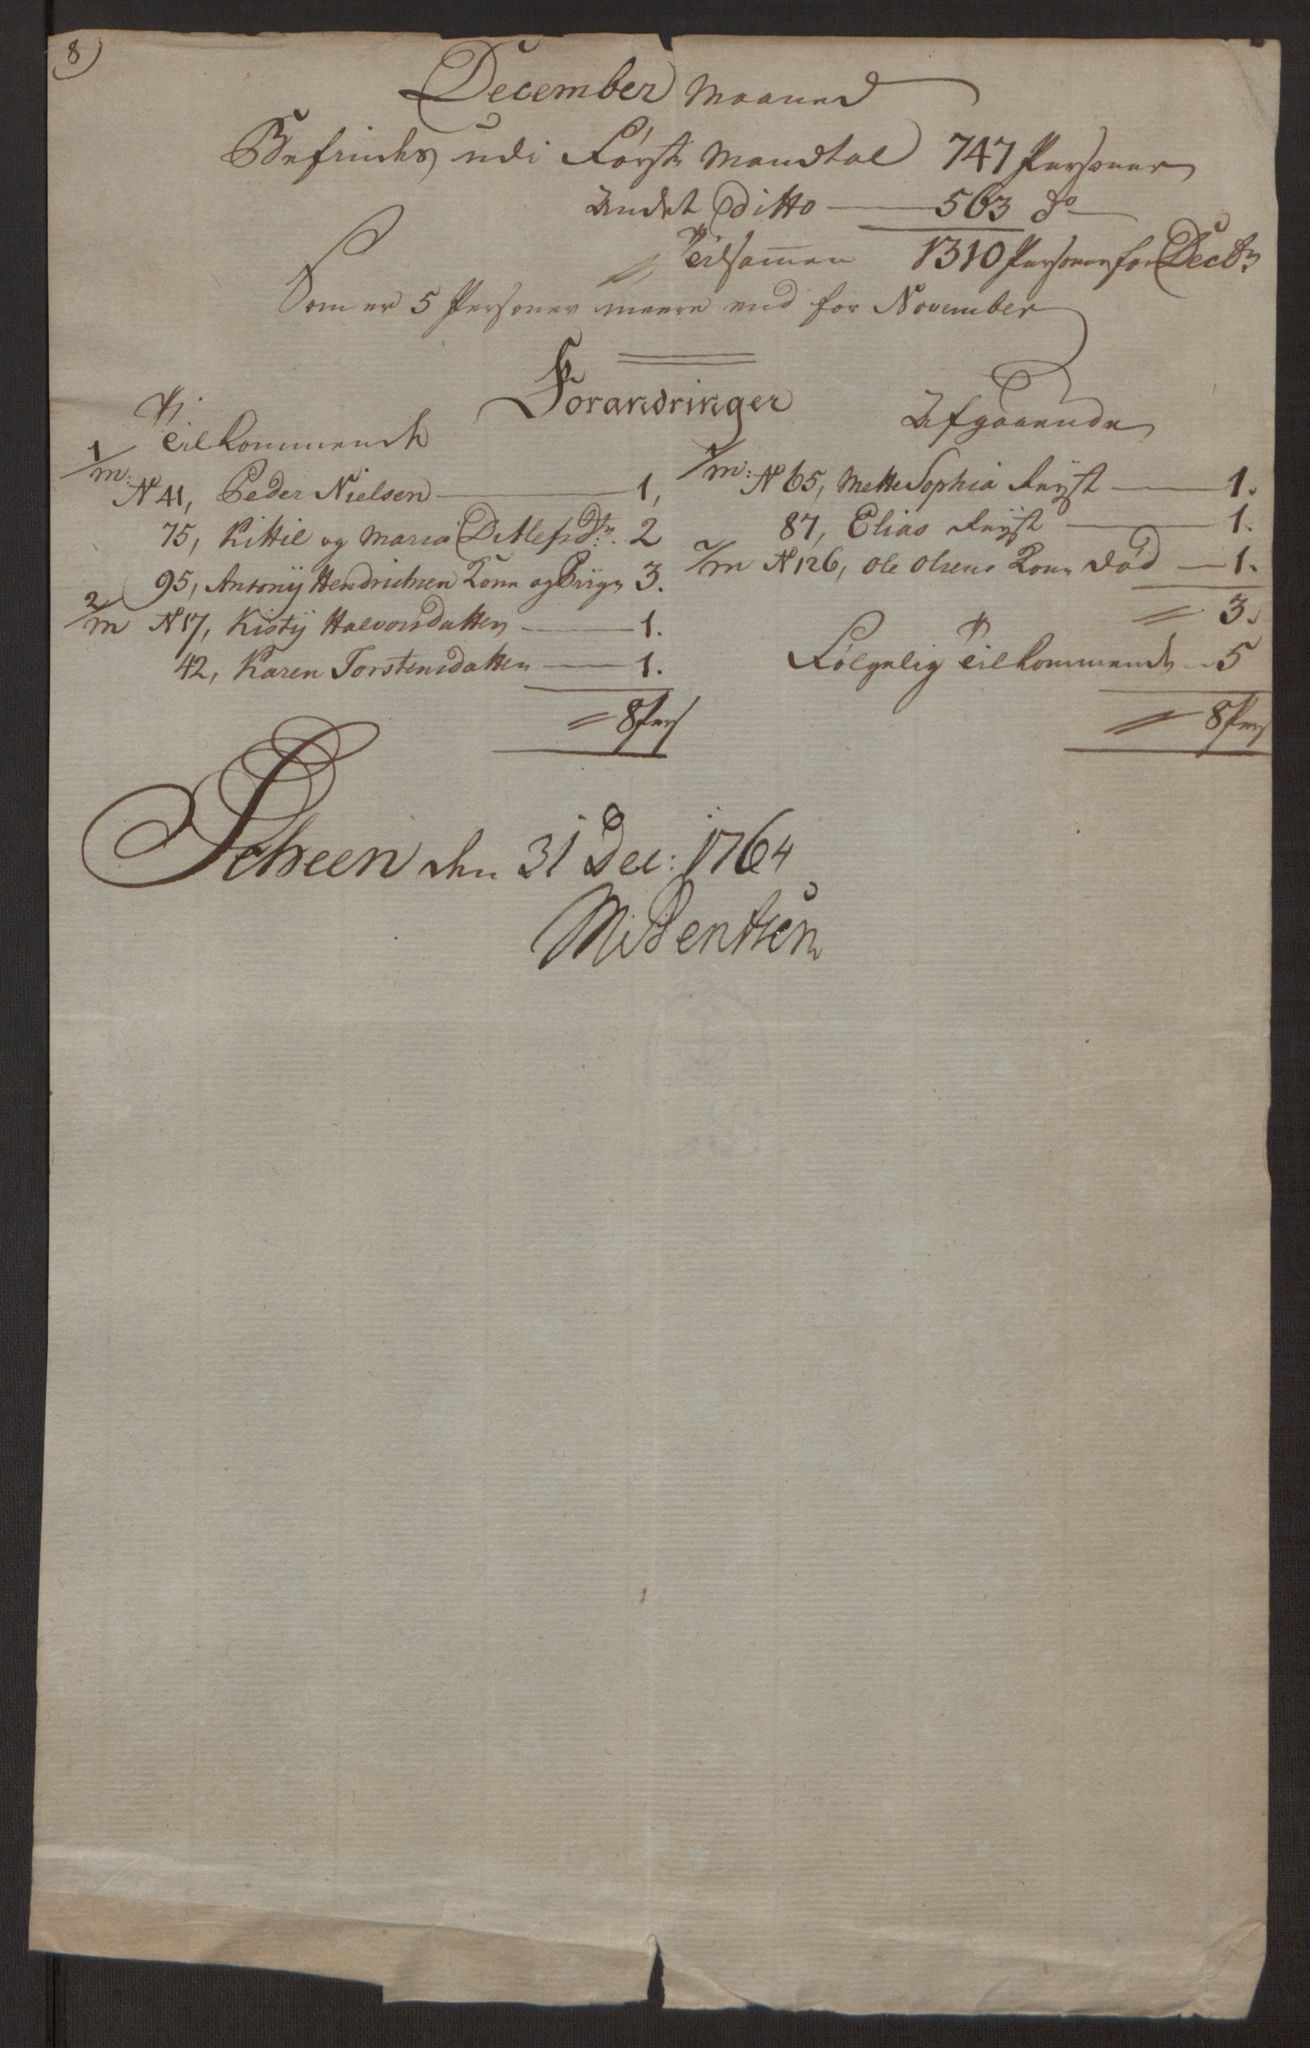 8)
December Maaned
Befindes udi Første Mandtal 747 Personer
Andet Ditto — 563 do
Tilsamen 1310 Personer for Decbr
Som er 5 Personer meere end for November
Forandringer
Tilkommende
1/m: N 41, Peder Nielsen — 1,
75, Kittil og Maria Ditlefsdtr. 2
95, Antonij Hendrichsen Kone og Piige 3.
2/m N 17, Kisty Halvorsdatter — 1.
42, Karen Torstensdatter — 1.
8 Pers
Afgaaende
1/m: N 65, Mette Sophia Reyst — 1.
87, Elias Reyst — 1.
2/m N 126, Ole Olsens Kone Død — 1.
3.
Følgelig Tilkommende 5
8 Pers
Scheen den 31 Dec: 1764
M Bentsen